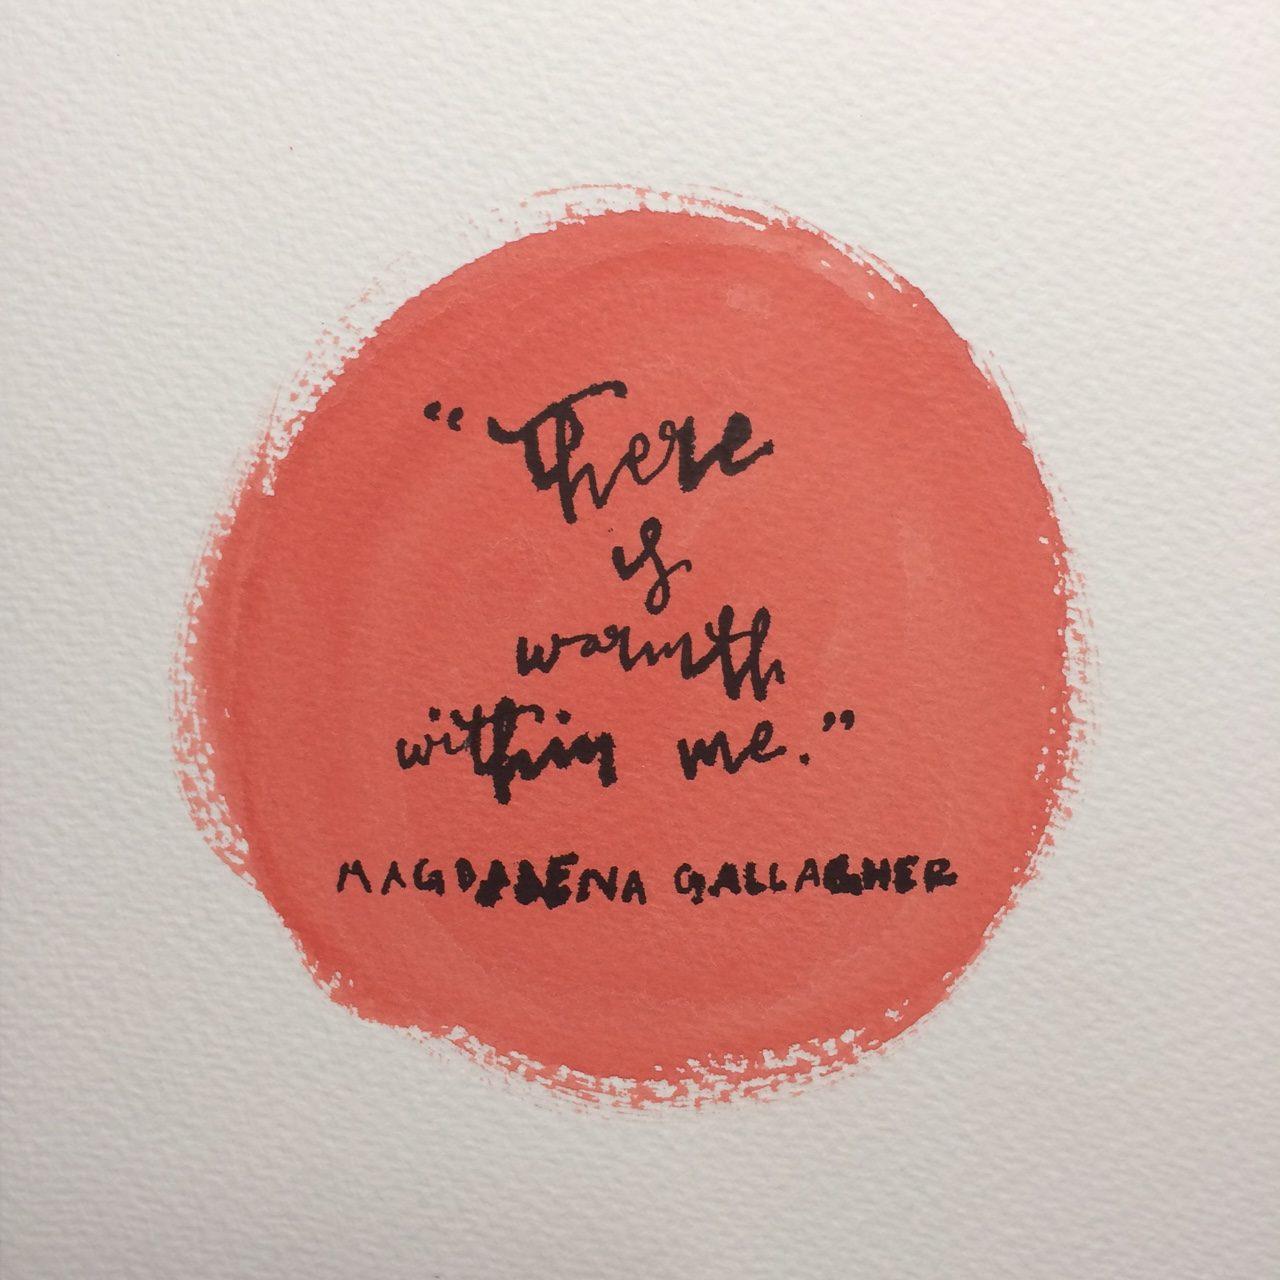 “There
is
warmth
within me.”
MAGDALENA GALLAGHER